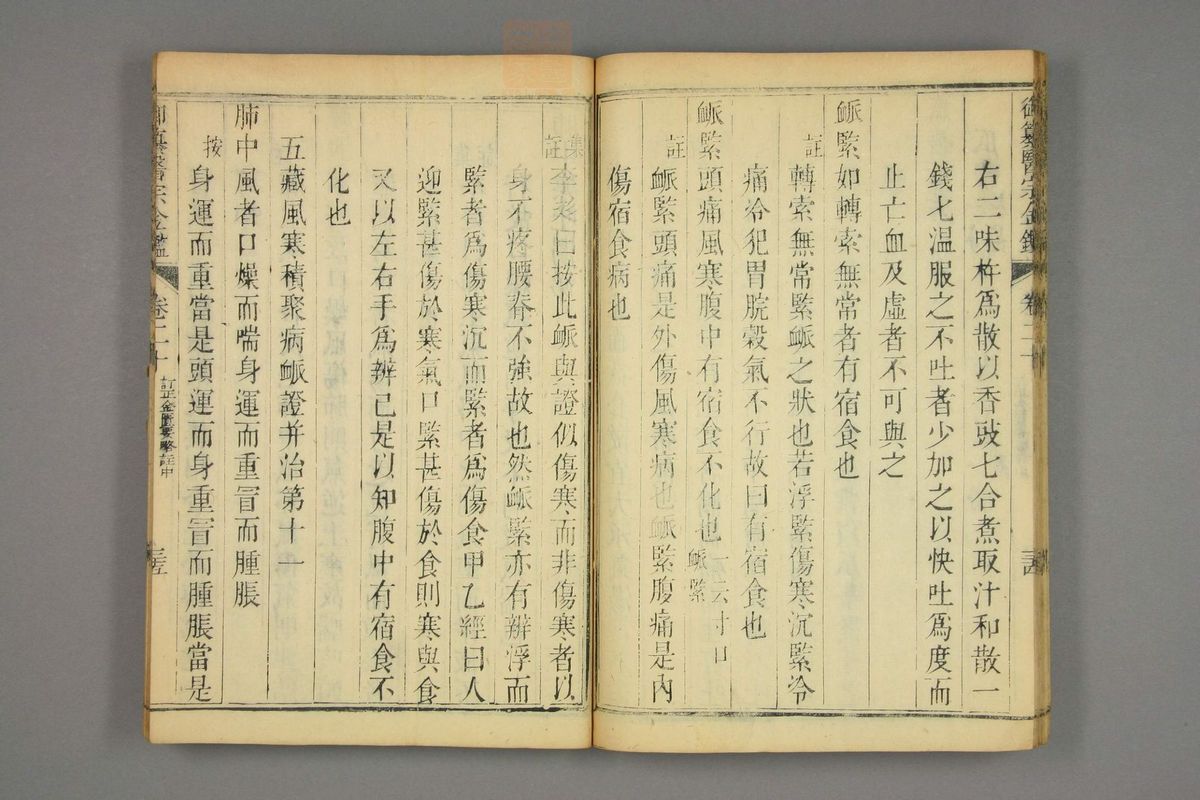 御纂醫宗金鑑 卷二十 三四
右二味杵爲散以香豉七合煮取汁和散一
錢七温服之不吐者少加之以快吐爲度而
止亡血及虛者不可與之
脈緊如轉索無常者有宿食也
註轉索無常緊脈之狀也若浮緊傷寒沉緊冷
痛冷犯胃脘穀氣不行故曰有宿食也
脈緊頭痛風寒腹中有宿食不化也一云寸口脈緊
註脈緊頭痛是外傷風寒病也脈緊腹痛是內
傷宿食病也
集註李彣曰按此脈與證似傷寒而非傷寒者以
身不疼腰脊不強故也然脈緊亦有辨浮而
緊者爲傷寒沉而緊者爲傷食甲乙經曰人
迎緊甚傷於寒氣口緊甚傷於食則寒與食
又以左右手爲辨已是以知腹中有宿食不
化也
五藏風寒積聚病脈證并治第十一
肺中風者口燥而喘身運而重冒而腫脹
按身運而重當是頭運而身重冒而腫脹當是
御纂醫宗金鑑 卷二十 訂正金匱要略註中 三五